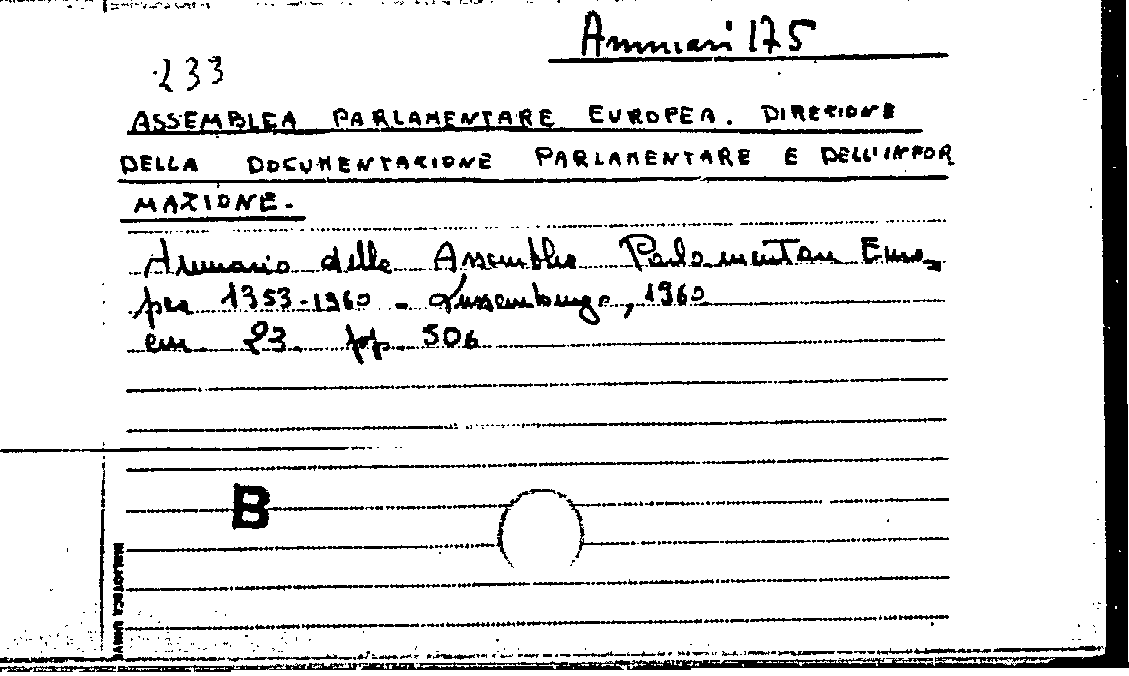 Annuari 175
233
ASSEMBLEA PARLAMENTARE EUROPEA. DIREZIONE
DELLA DOCUMENTAZIONE PARLAMENTARE E DELL'INFOR
MAZIONE.
Annuario della Assemblea Parlamentare Euro=
pea 1959-1960 - Lussemburgo, 1960
cm. 23 pp. 506
B
BIBLIOTECA UNIV